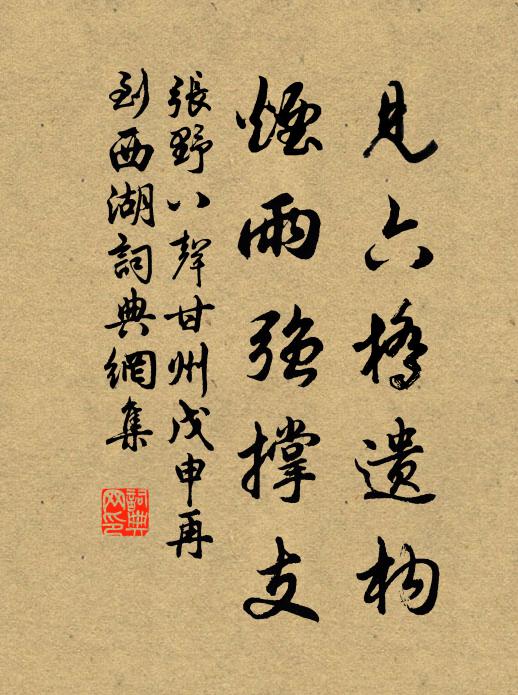 見六橋遺构
煙雨強撐支
張野八聲甘州戊申再
到西湖詞典網集
詞典網印